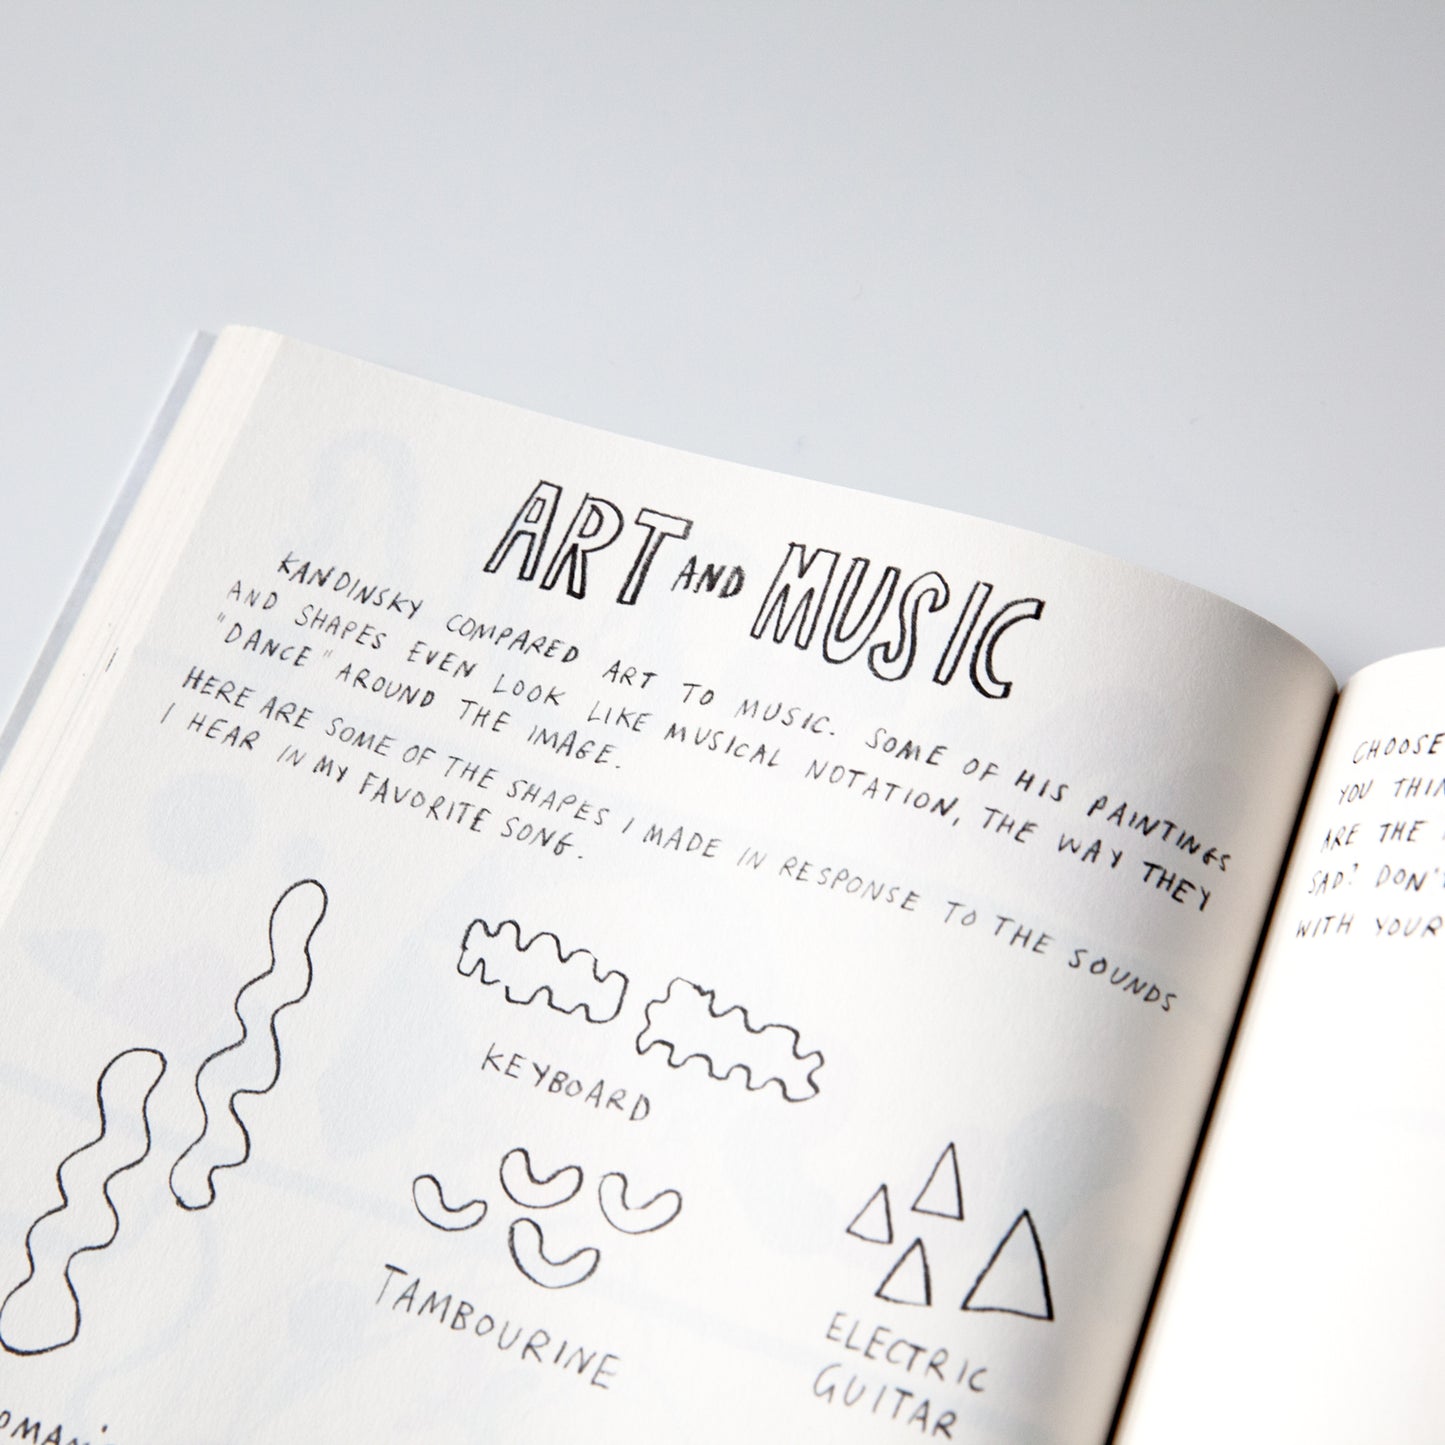 ART AND MUSIC
KANDINSKY COMPARED ART TO MUSIC. SOME OF HIS PAINTINGS
AND SHAPES EVEN LOOK LIKE MUSICAL NOTATION, THE WAY THEY
"DANCE" AROUND THE IMAGE.
HERE ARE SOME OF THE SHAPES I MADE IN RESPONSE TO THE SOUNDS
I HEAR IN MY FAVORITE SONG.
KEYBOARD
TAMBOURINE
ELECTRIC
GUITAR
CHOOSE
YOU
ARE THE
SAD? DON'T
WITH YOUR